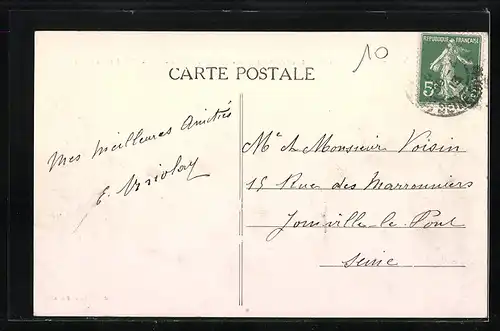 10
REPUBLIQUE FRANÇAISE
5c
CARTE POSTALE
Mes meilleures Amitiés
E.
Me & Monsieur Voisin
15 Rue des Marronniers
Joinville-le-Pont
Seine